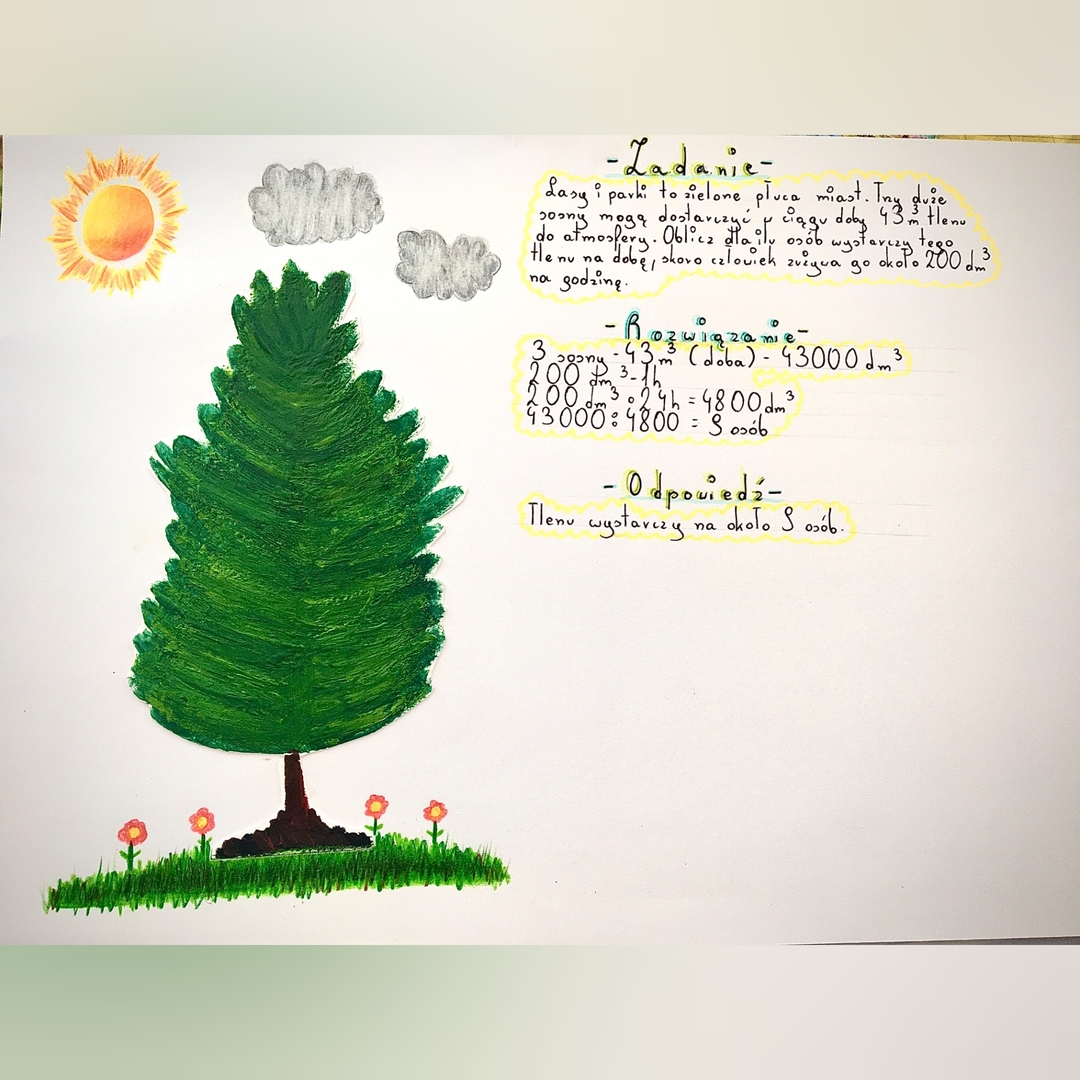 - Zadanie -
Lasy i parki to zielone płuca miast. Trzy duże
sosny mogą dostarczyć w ciągu doby 43 m³ tlenu
do atmosfery. Oblicz dla ilu osób wystarczy tego
tlenu na dobę, skoro człowiek zużywa go około 200 dm³
na godzinę.
- Rozwiązanie -
3 sosny - 43 m³ (doba) - 43000 dm³
200 dm³ - 1h
200 dm³ · 24h = 4800 dm³
43000 : 4800 = 9 osób
- Odpowiedź -
Tlenu wystarczy na około 9 osób.